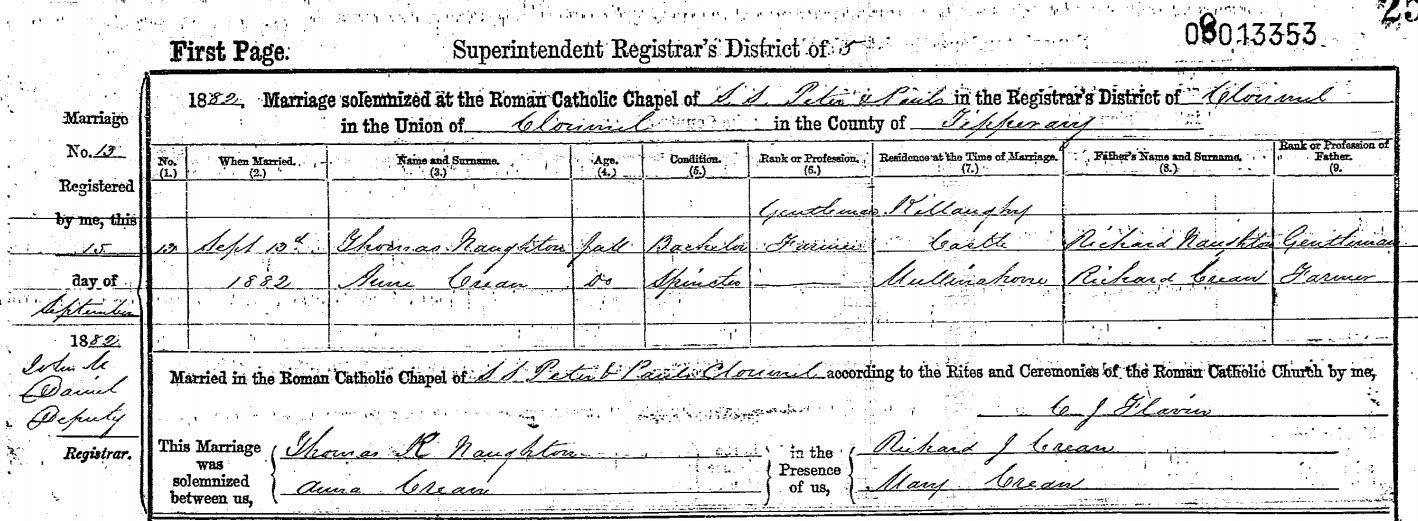 08013353
First Page. Superintendent Registrar's District of
1882. Marriage solemnized at the Roman Catholic Chapel of S.S. Peter & Pauls in the Registrar's District of Clonmel
in the Union of Clonmel in the County of Tipperary
Marriage
No. 13
Registered
by me, this
15
day of
September
1882
John Mc
Daniel
Deputy
Registrar.
No. (1.) When Married. (2.) Name and Surname. (3.) Age. (4.) Condition. (5.) Rank or Profession. (6.) Residence at the Time of Marriage. (7.) Father's Name and Surname. (8.) Rank or Profession of Father. (9.
Gentleman Killaughy
13 Sept 13th Thomas Naughton full Bachelor Farmer Castle Richard Naughton Gentleman
1882 Anne Crean Do Spinster Mullinahone Richard Crean Farmer
Married in the Roman Catholic Chapel of S S Peter & Pauls Clonmel according to the Rites and Ceremonies of the Roman Catholic Church by me,
C J Flavin
This Marriage was solemnized between us,
Thomas R Naughton
Anna Crean
in the Presence of us,
Richard J Crean
Mary Crean